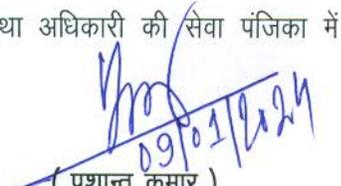 था अधिकारी की सेवा पंजिका में
09/01/2024
( प्रशान्त कुमार )